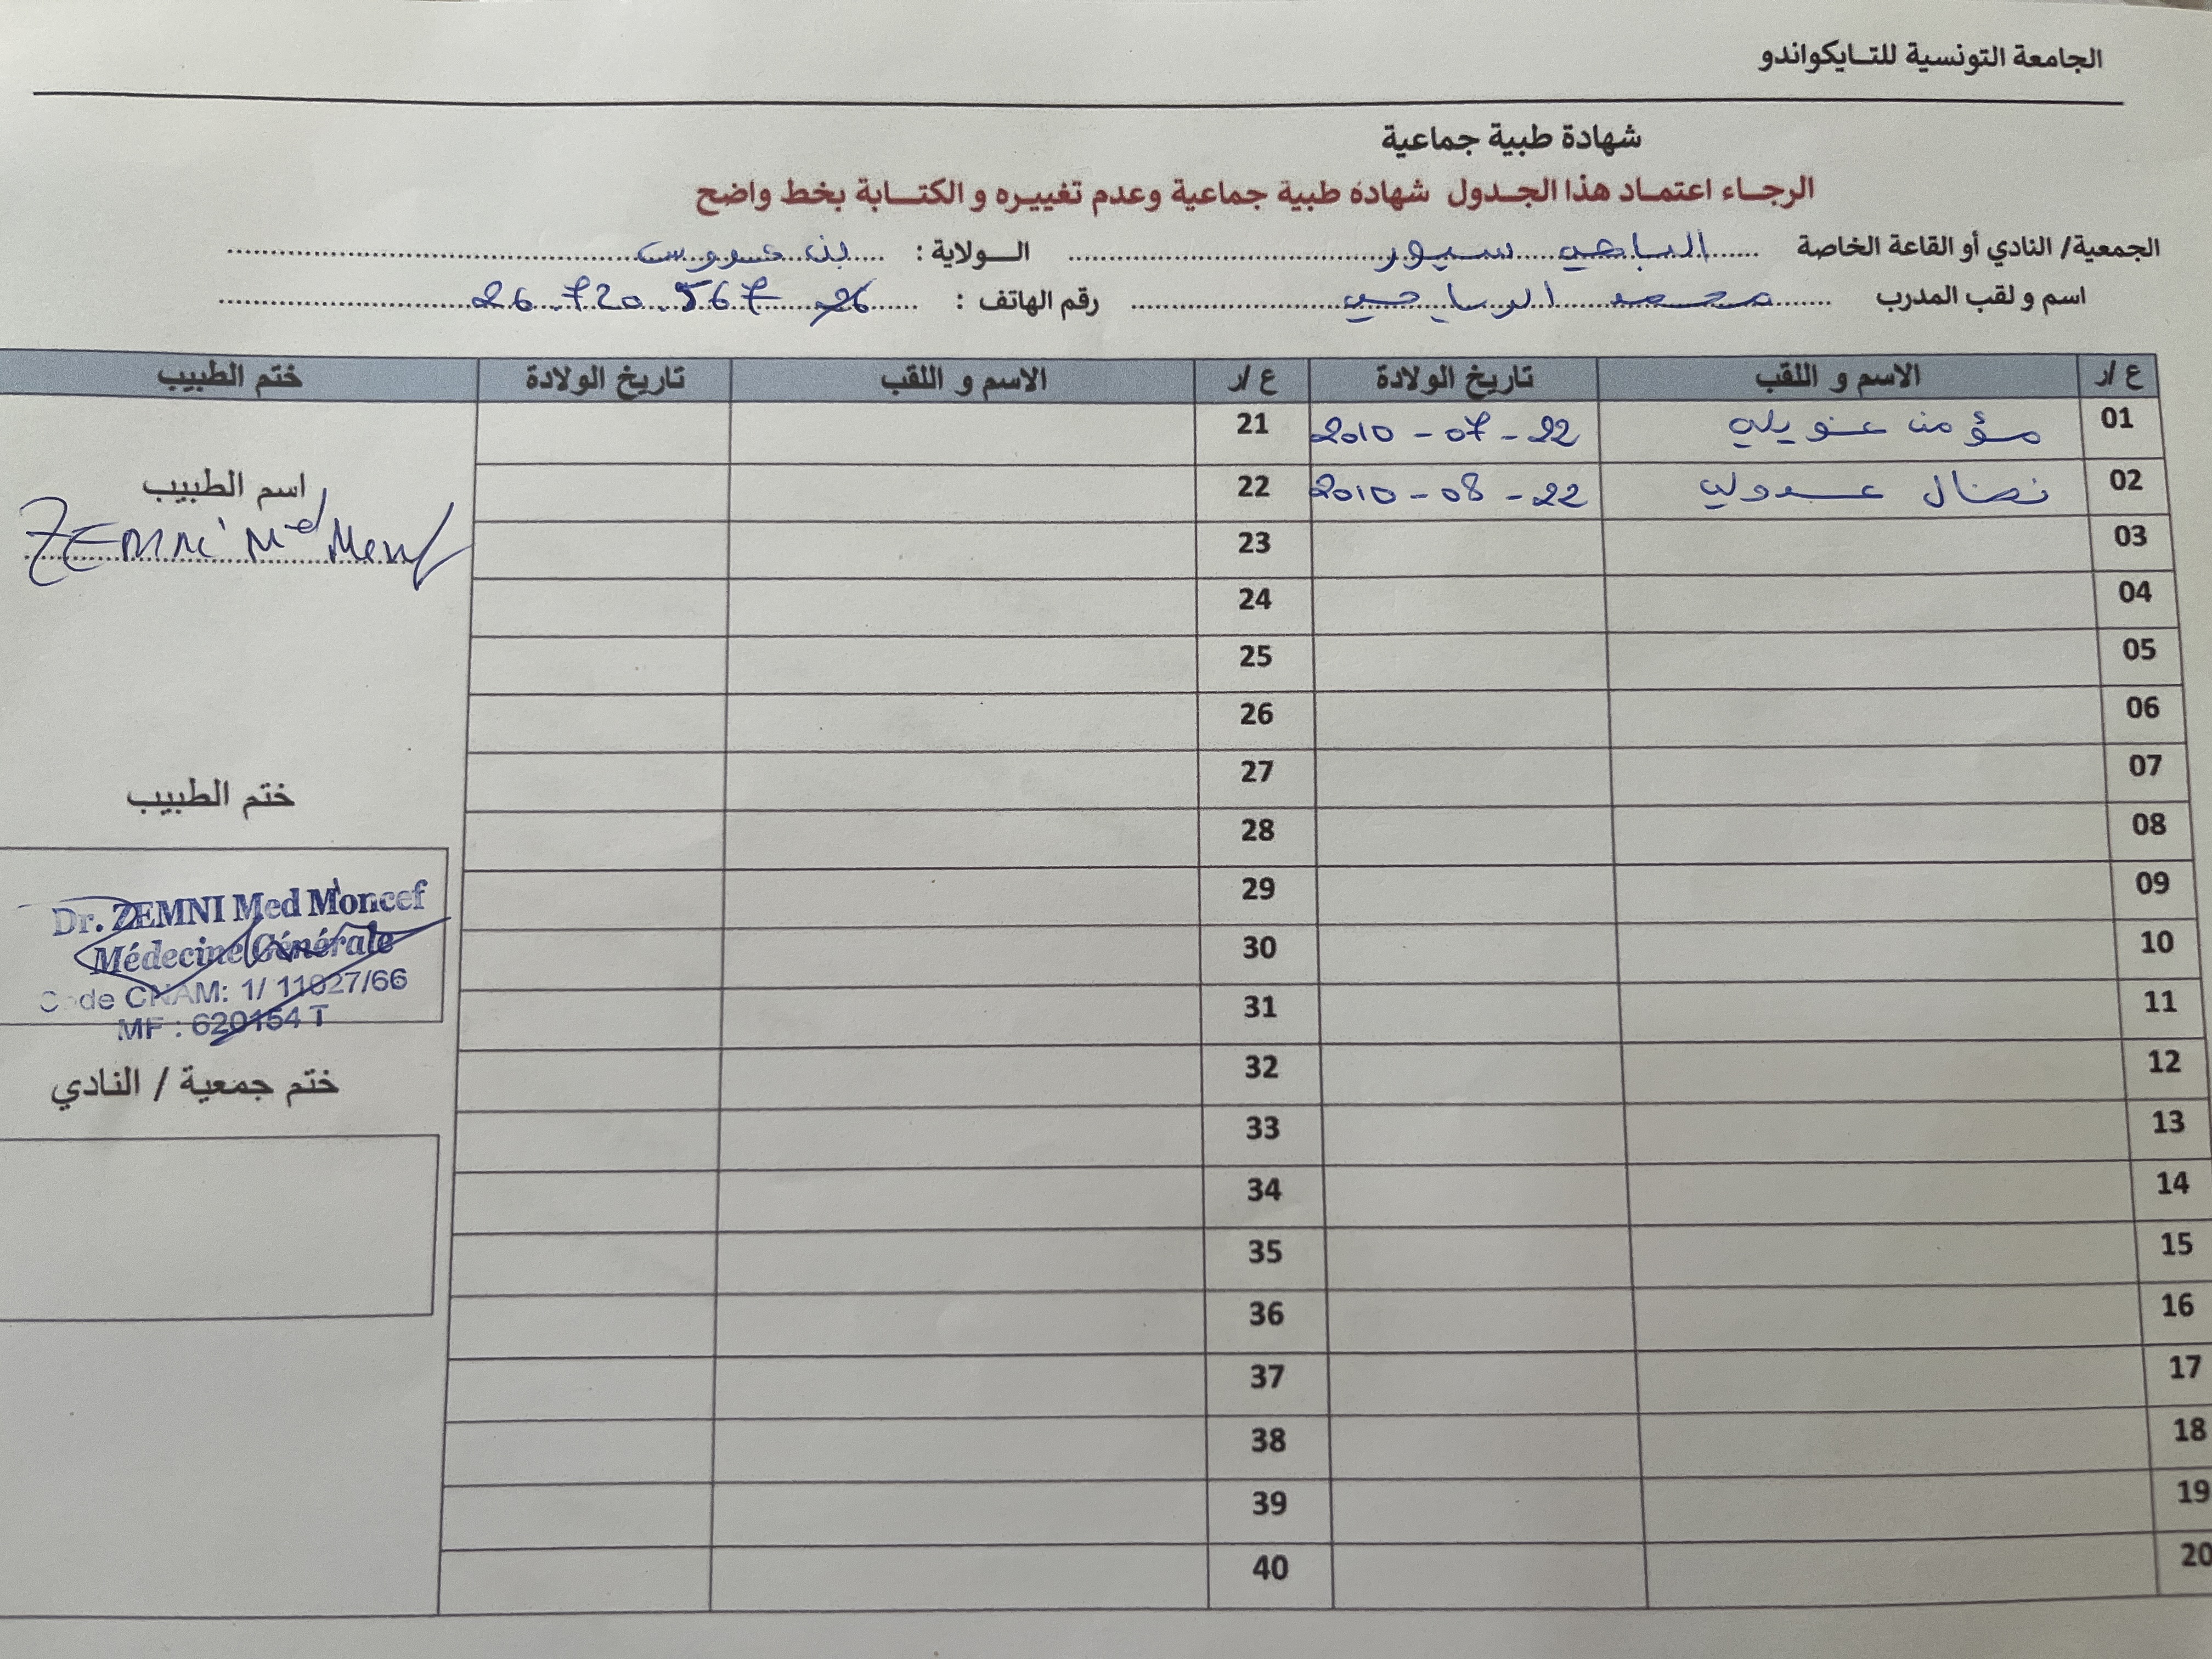 الجامعة التونسية للتايكواندو
شهادة طبية جماعية
الرجاء اعتماد هذا الجدول شهادة طبية جماعية وعدم تغييره و الكتابة بخط واضح
الجمعية/ النادي أو القاعة الخاصة الباجي سبور الولاية : بن عروس
اسم و لقب المدرب محمد الباجي رقم الهاتف : 26 720 567
ع/ر الاسم و اللقب تاريخ الولادة ع/ر الاسم و اللقب تاريخ الولادة ختم الطبيب
01 مؤمن عنويلي 2010 - 07 - 22 21
02 نضال عبدولي 2010 - 08 - 22 22
اسم الطبيب
ZEMNI Med
03 23
04 24
05 25
06 26
07 27
ختم الطبيب
08 28
09 29
10 30
11 31
Dr. ZEMNI Med Moncef
Médecine Générale
Code CNAM: 1/ 11027/66
MF : 620154 T
ختم جمعية / النادي
12 32
13 33
14 34
15 35
16 36
17 37
18 38
19 39
20 40